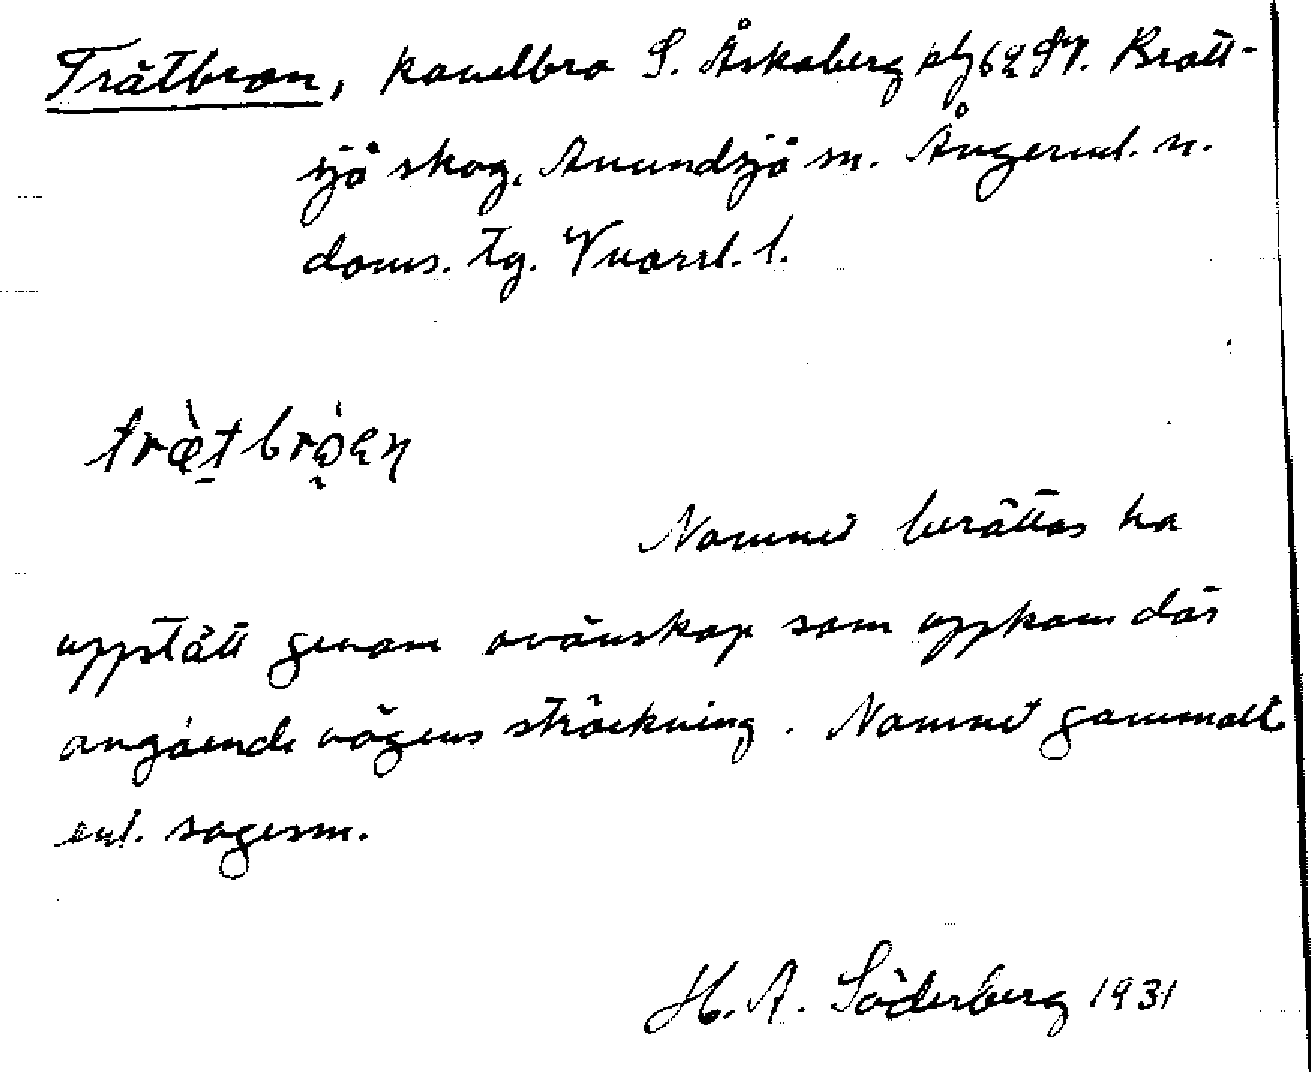 Trätbron, kavelbro S. Åskaberg plg 62 S7. Bratt-
sjö skog, Anundsjö sn. Ångerml. n.
doms. tg. Vnorrl. l.
trætbroen
Namnet berättas ha
uppstått genom ovänskap som uppkom där
angående vägens sträckning. Namnet gammalt
enl. sagesm.
H. A. Söderberg 1931